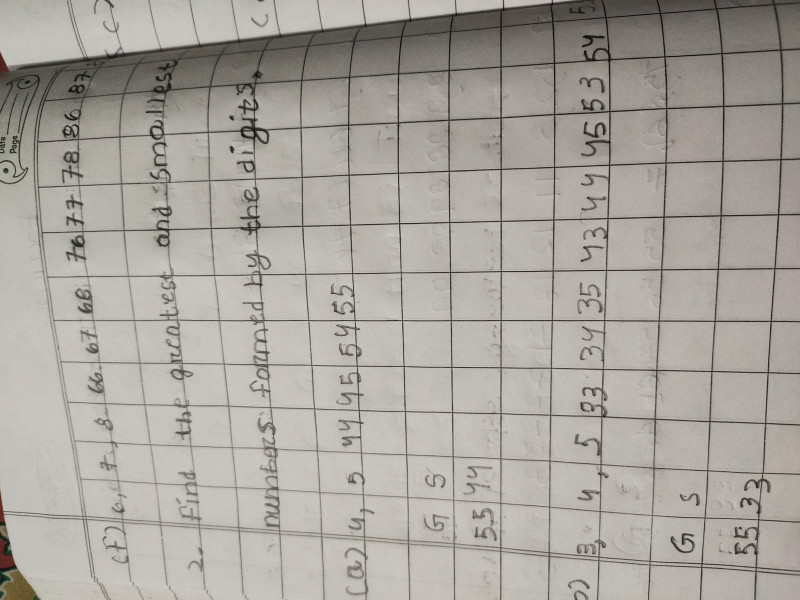 Date
Page
(f) 6, 7, 8 66 67 68 76 77 78 86 87
2. Find the greatest and smallest
numbers formed by the digits.
(a) 4, 5 44 45 54 55
G S
55 44
3, 4, 5 33 34 35 43 44 45 53 54
G S
55 33
(c)